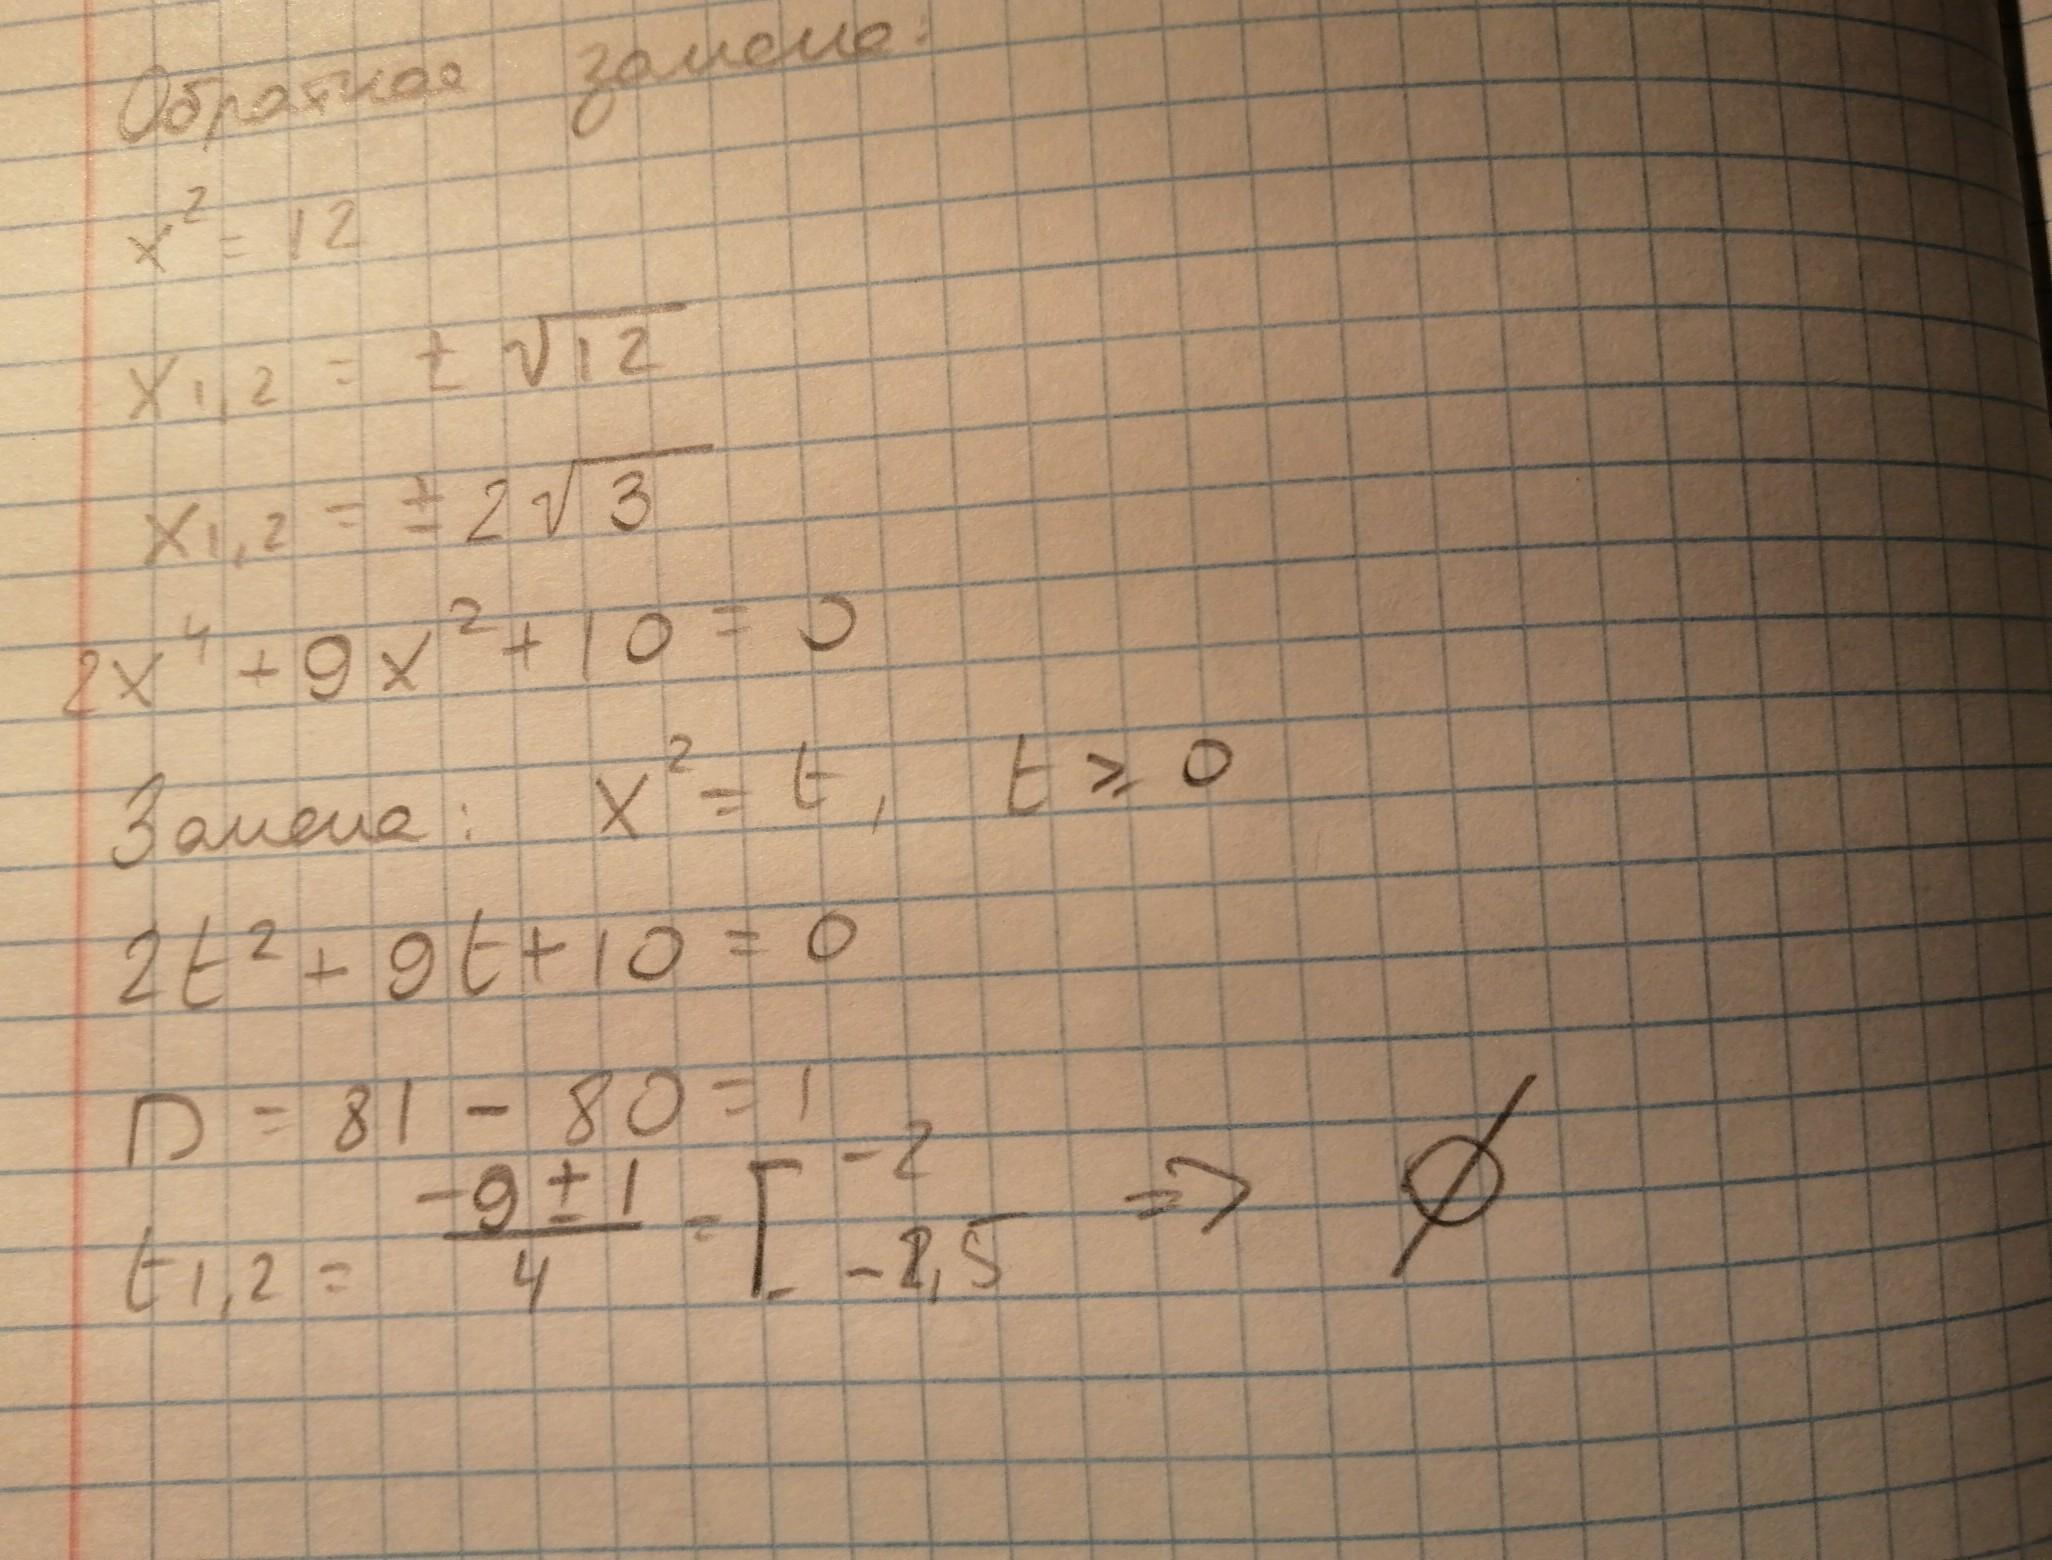 Обратная замена:
x² = 12
x₁,₂ = ± √12
x₁,₂ = ± 2√3
2x⁴ + 9x² + 10 = 0
Замена: x² = t, t ⩾ 0
2t² + 9t + 10 = 0
D = 81 - 80 = 1
t₁,₂ = (-9 ± 1)/4 = [ -2 -2,5 => ∅